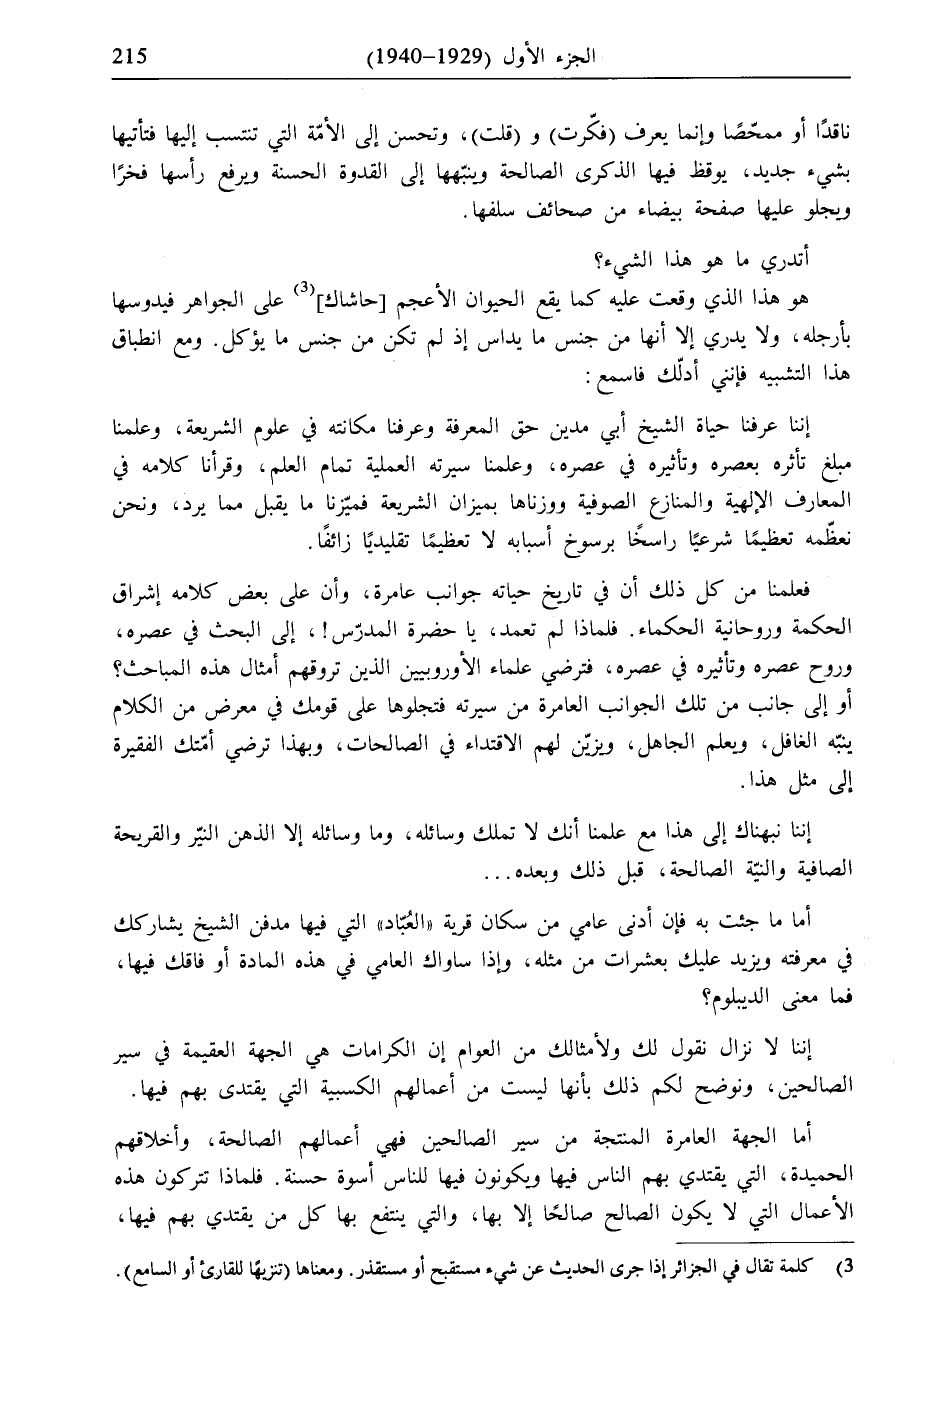 الجزء الأول (1929–1940) 215
ناقدًا أو ممحّصًا وإنما يعرف (فكّرت) و (قلت)، وتحسن إلى الأمّة التي تنتسب إليها فتأتيها
بشيء جديد، يوقظ فيها الذكرى الصالحة وينبّهها إلى القدوة الحسنة ويرفع رأسها فخرًا
ويجلو عليها صفحة بيضاء من صحائف سلفها.
أتدري ما هو هذا الشيء؟
هو هذا الذي وقعت عليه كما يقع الحيوان الأعجم [حاشاك](3) على الجواهر فيدوسها
بأرجله، ولا يدري إلا أنها من جنس ما يداس إذ لم تكن من جنس ما يؤكل. ومع انطباق
هذا التشبيه فإنني أدلّك فاسمع :
إننا عرفنا حياة الشيخ أبي مدين حق المعرفة وعرفنا مكانته في علوم الشريعة، وعلمنا
مبلغ تأثره بعصره وتأثيره في عصره، وعلمنا سيرته العملية تمام العلم، وقرأنا كلامه في
المعارف الإلهية والمنازع الصوفية ووزناها بميزان الشريعة فميّزنا ما يقبل مما يرد، ونحن
نعظّمه تعظيمًا شرعيًا راسخًا برسوخ أسبابه لا تعظيمًا تقليديًا زائفًا.
فعلمنا من كل ذلك أن في تاريخ حياته جوانب عامرة، وأن على بعض كلامه إشراق
الحكمة وروحانية الحكماء. فلماذا لم تعمد، يا حضرة المدرّس!، إلى البحث في عصره،
وروح عصره وتأثيره في عصره، فترضي علماء الأوروبيين الذين تروقهم أمثال هذه المباحث؟
أو إلى جانب من تلك الجوانب العامرة من سيرته فتجلوها على قومك في معرض من الكلام
ينبّه الغافل، ويعلم الجاهل، ويزيّن لهم الاقتداء في الصالحات، وبهذا ترضي أمّتك الفقيرة
إلى مثل هذا.
إننا نبهناك إلى هذا مع علمنا أنك لا تملك وسائله، وما وسائله إلا الذهن النيّر والقريحة
الصافية والنيّة الصالحة، قبل ذلك وبعده...
أما ما جئت به فإن أدنى عامي من سكان قرية «العُبّاد» التي فيها مدفن الشيخ يشاركك
في معرفته ويزيد عليك بعشرات من مثله، وإذا ساواك العامي في هذه المادة أو فاقك فيها،
فما معنى الديبلوم؟
إننا لا نزال نقول لك ولأمثالك من العوام إن الكرامات هي الجهة العقيمة في سير
الصالحين، ونوضح لكم ذلك بأنها ليست من أعمالهم الكسبية التي يقتدى بهم فيها.
أما الجهة العامرة المنتجة من سير الصالحين فهي أعمالهم الصالحة، وأخلاقهم
الحميدة، التي يقتدي بهم الناس فيها ويكونون فيها للناس أسوة حسنة. فلماذا تتركون هذه
الأعمال التي لا يكون الصالح صالحًا إلا بها، والتي ينتفع بها كل من يقتدي بهم فيها،
3) كلمة تقال في الجزائر إذا جرى الحديث عن شيء مستقبح أو مستقذر. ومعناها (تنزيهًا للقارئ أو السامع).